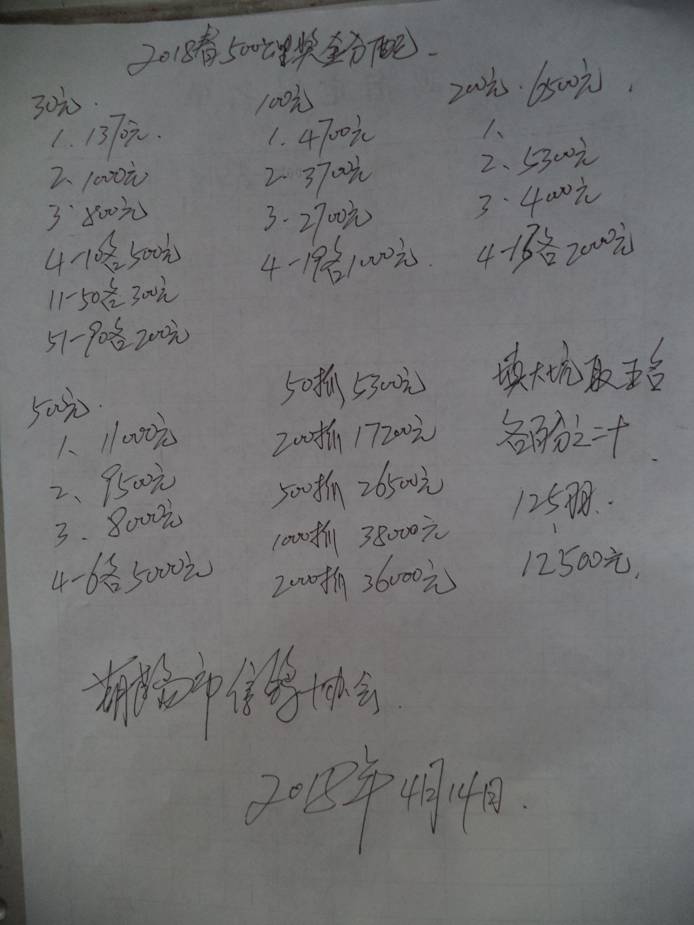 2018春500公里奖金分配
30元.
1. 1370元.
2、1000元
3. 800元
4-10名500元
11-50名300元
51-90名200元
100元
1. 4700元
2. 3700元
3. 2700元
4-19名1000元.
200元. 6500元.
1、
2、5300元
3. 400元
名2000元
500元.
1、11000元
2、9500元
3. 8000元
4-6名5000元
50抓5300元
200抓17200元
500抓26500元
1000抓38000元
2000抓36000元
填大坑取五名
各百分之二十.
125羽.
12500元.
信鸽协会.
2018年4月14日.